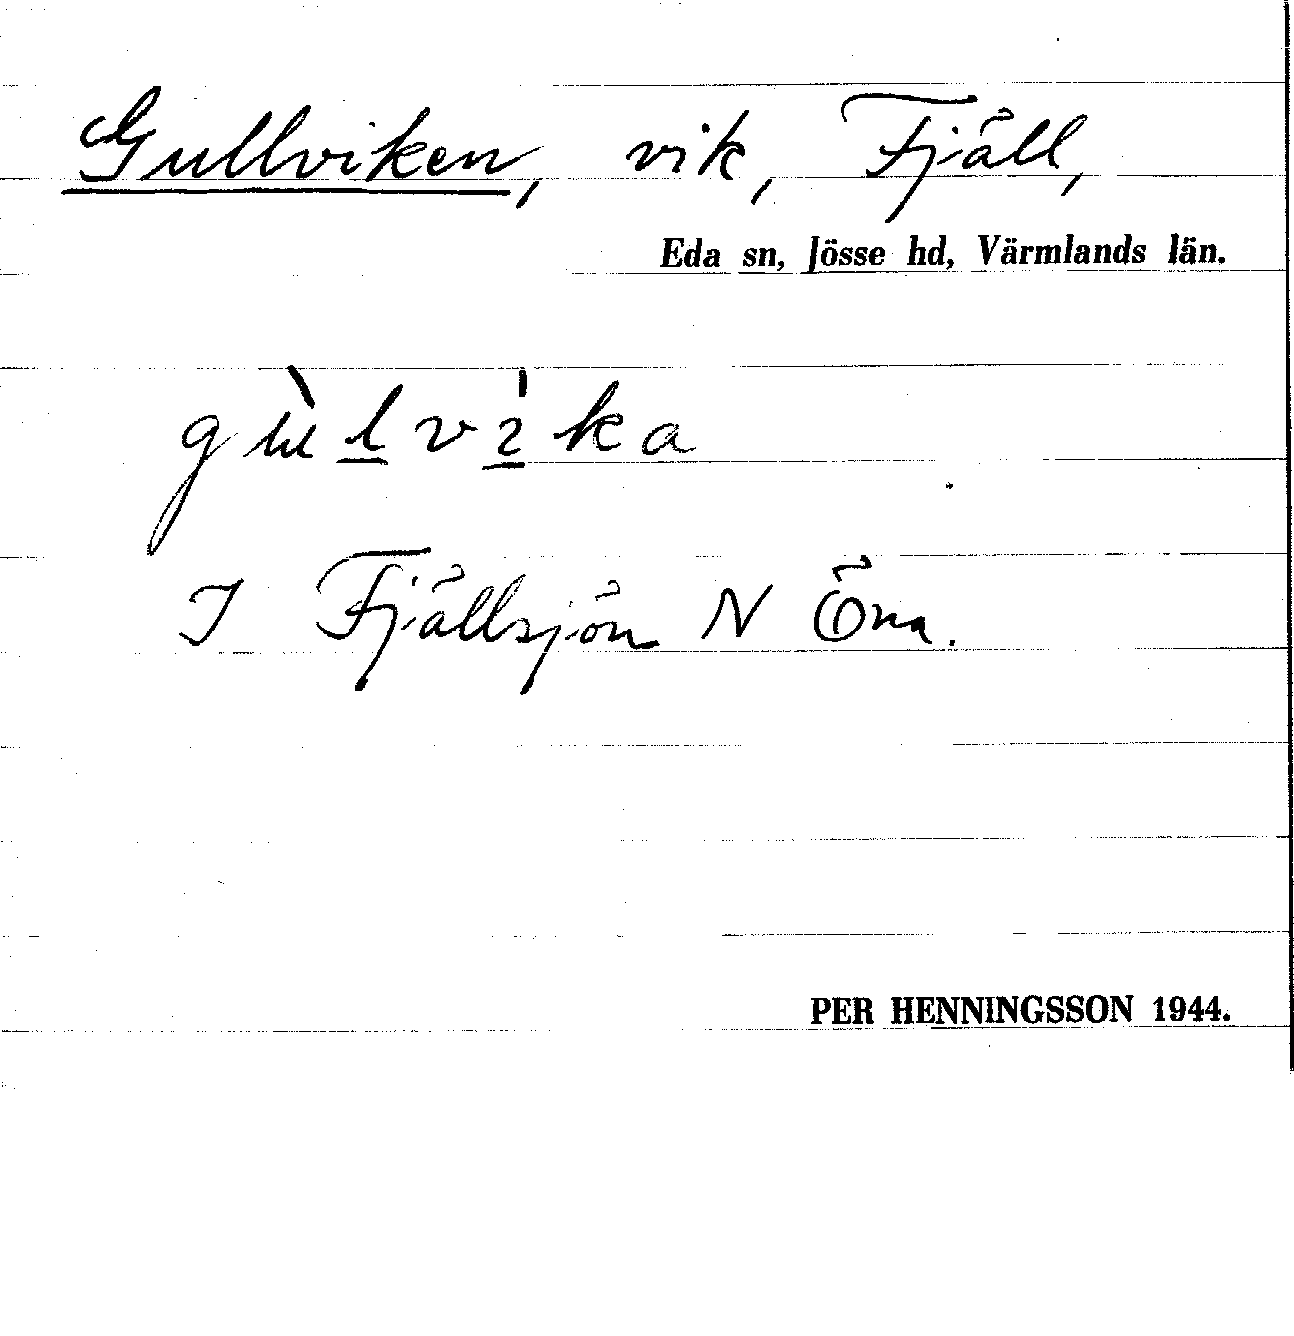 Gullviken, vik, Fjäll,
Eda sn, Jösse hd, Värmlands län.
gùlvıka
I Fjällsjön N Öna.
PER HENNINGSSON 1944.